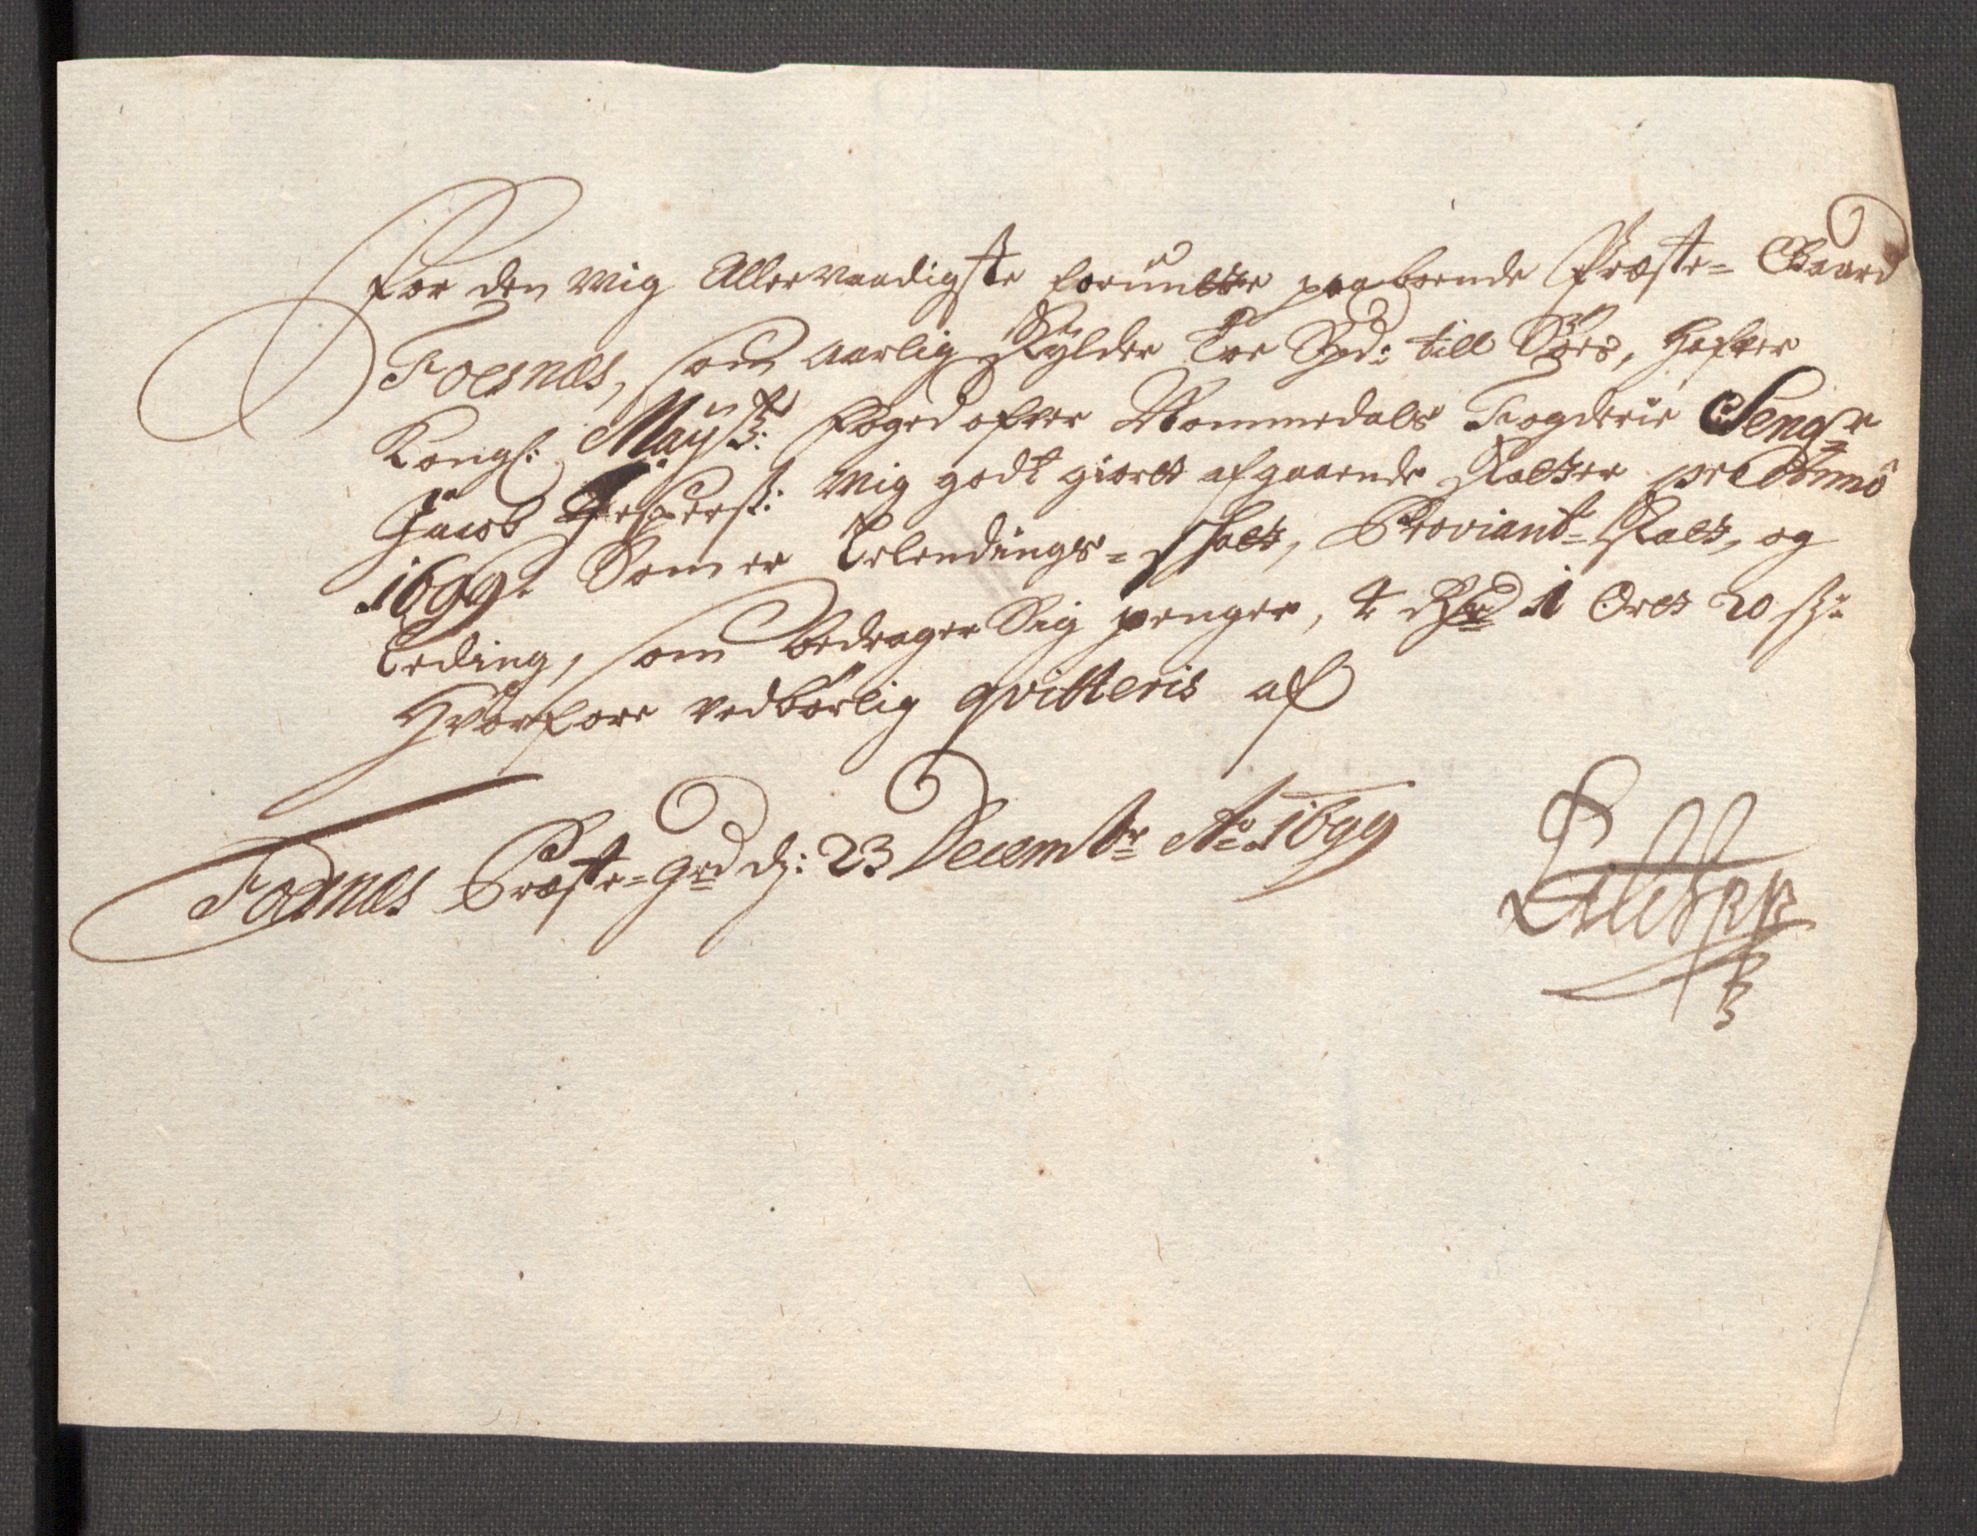 For den mig Allernaadigste forundte paaboende Præste- Gaard
Foesnæs, som aarlig Skylder Toe Spd: till Søes, hafver
Kongl: Mayst: foged ofver Nommedals Fogderie Sengr
Jacob Jesperss: mig godt giordt afgaaende Skatter pro Anno
1699. Som er Udlendings- schatt, Proviant- Skatt, og
Leding, som bedrager Sig penger, 4 Rdr 1 Ort 20 s:
Hvorfore vedbørlig qvitteris af
Foesnæs Præste- grd d: 23 Decembr Ao 1699